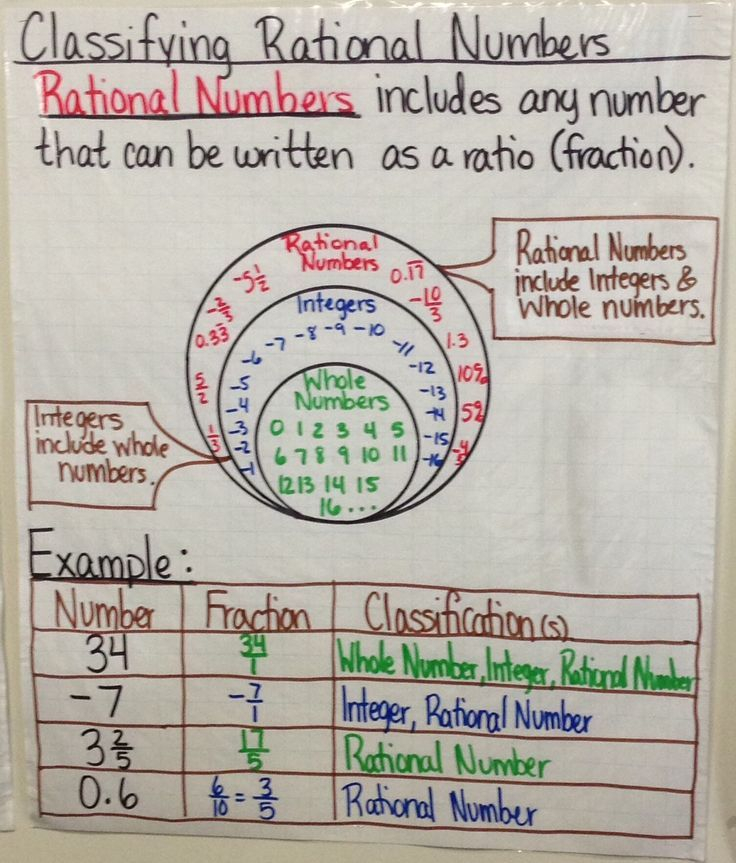 Classifying Rational Numbers
Rational Numbers includes any number
that can be written as a ratio (fraction).
Rational
Numbers
-5 1/2
0.1̅7̅
-2/3
-10/3
0.3̅3̅
1.3
5/2
10%
1/3
5%
-4/5
Rational Numbers
include Integers &
Whole numbers.
Integers
-6 -7 -8 -9 -10 -11
-5 -12
-4 -13
-3 -14
-2 -15
-1 -16
Integers
include whole
numbers.
Whole
Numbers
0 1 2 3 4 5
6 7 8 9 10 11
12 13 14 15
16...
Example:
Number Fraction Classification(s)
34 34/1 Whole Number, Integer, Rational Number
-7 -7/1 Integer, Rational Number
3 2/5 17/5 Rational Number
0.6 6/10 = 3/5 Rational Number